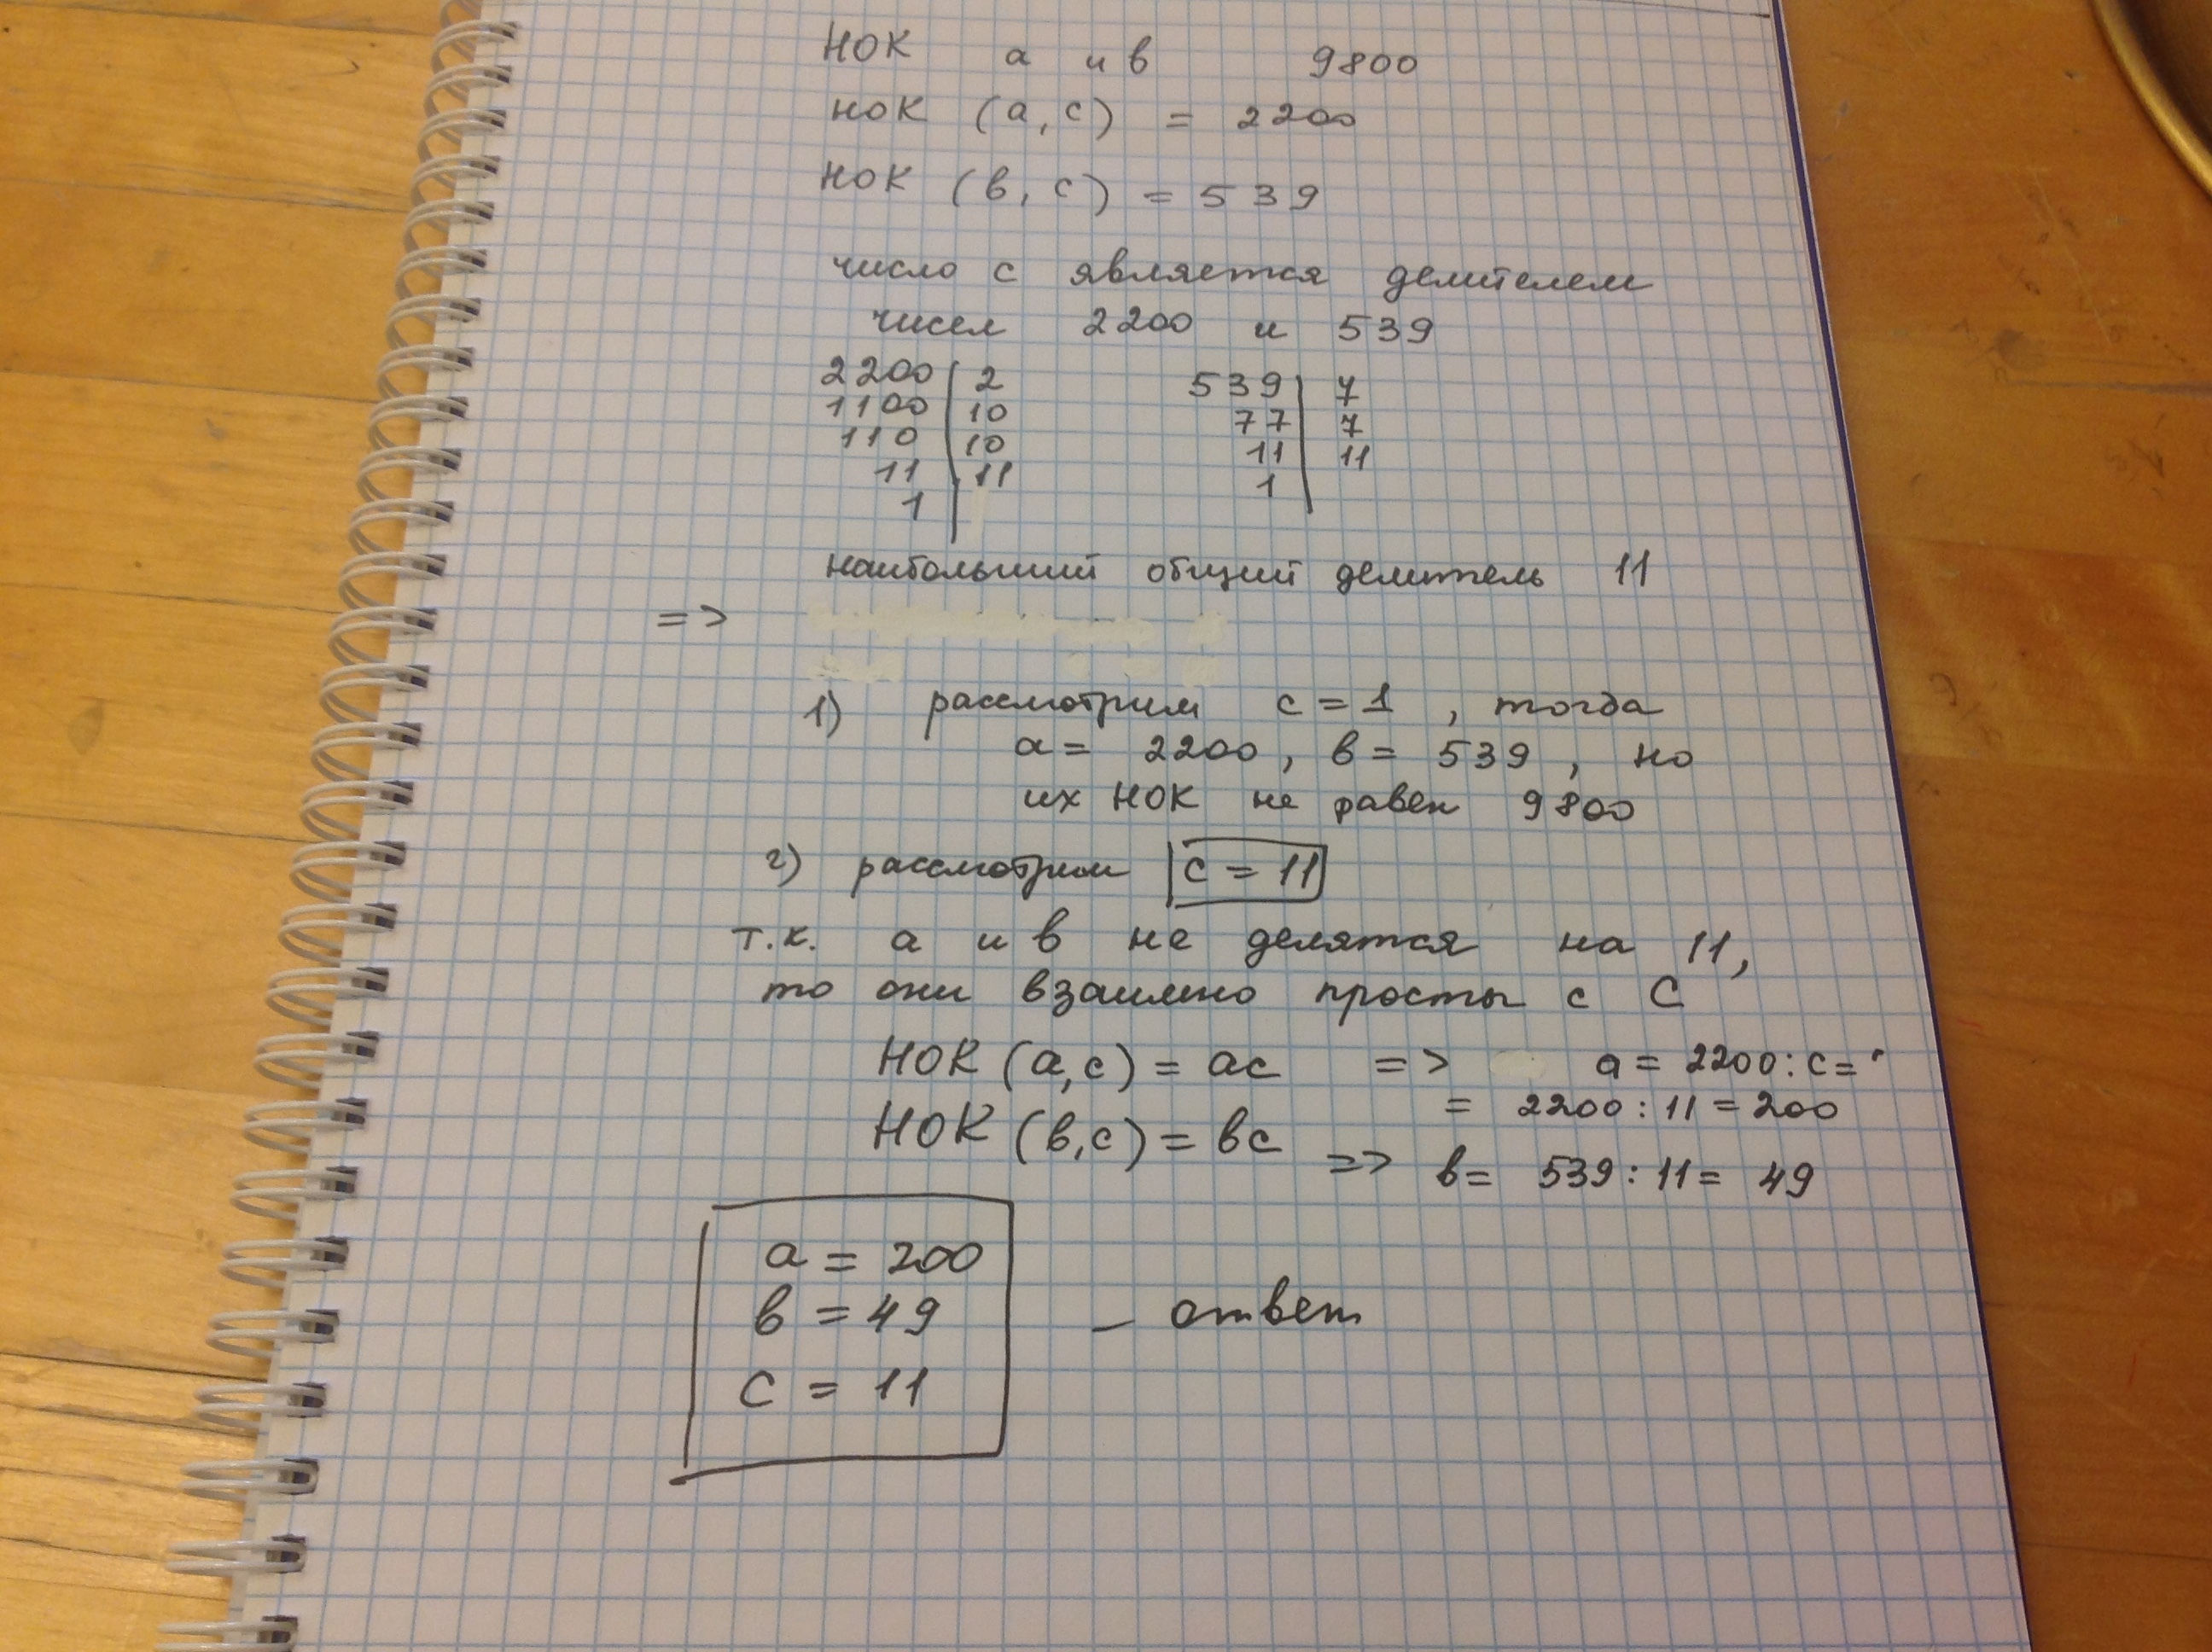 НОК а и в 9800
НОК (а, с) = 2200
НОК (в, с) = 539
число с является делителем
чисел 2200 и 539
2200 | 2 539 | 7
1100 | 10 77 | 7
110 | 10 11 | 11
11 | 11 1 |
1 |
наибольший общий делитель 11
=>
1) рассмотрим с = 1 , тогда
а = 2200 , в = 539 , но
их НОК не равен 9800
2) рассмотрим с = 11
т.к. а и в не делятся на 11,
то они взаимно просты с С
НОК (а,с) = ас => а = 2200 : с =
= 2200 : 11 = 200
НОК (в,с) = вс => в = 539 : 11 = 49
а = 200
в = 49 – ответ
с = 11